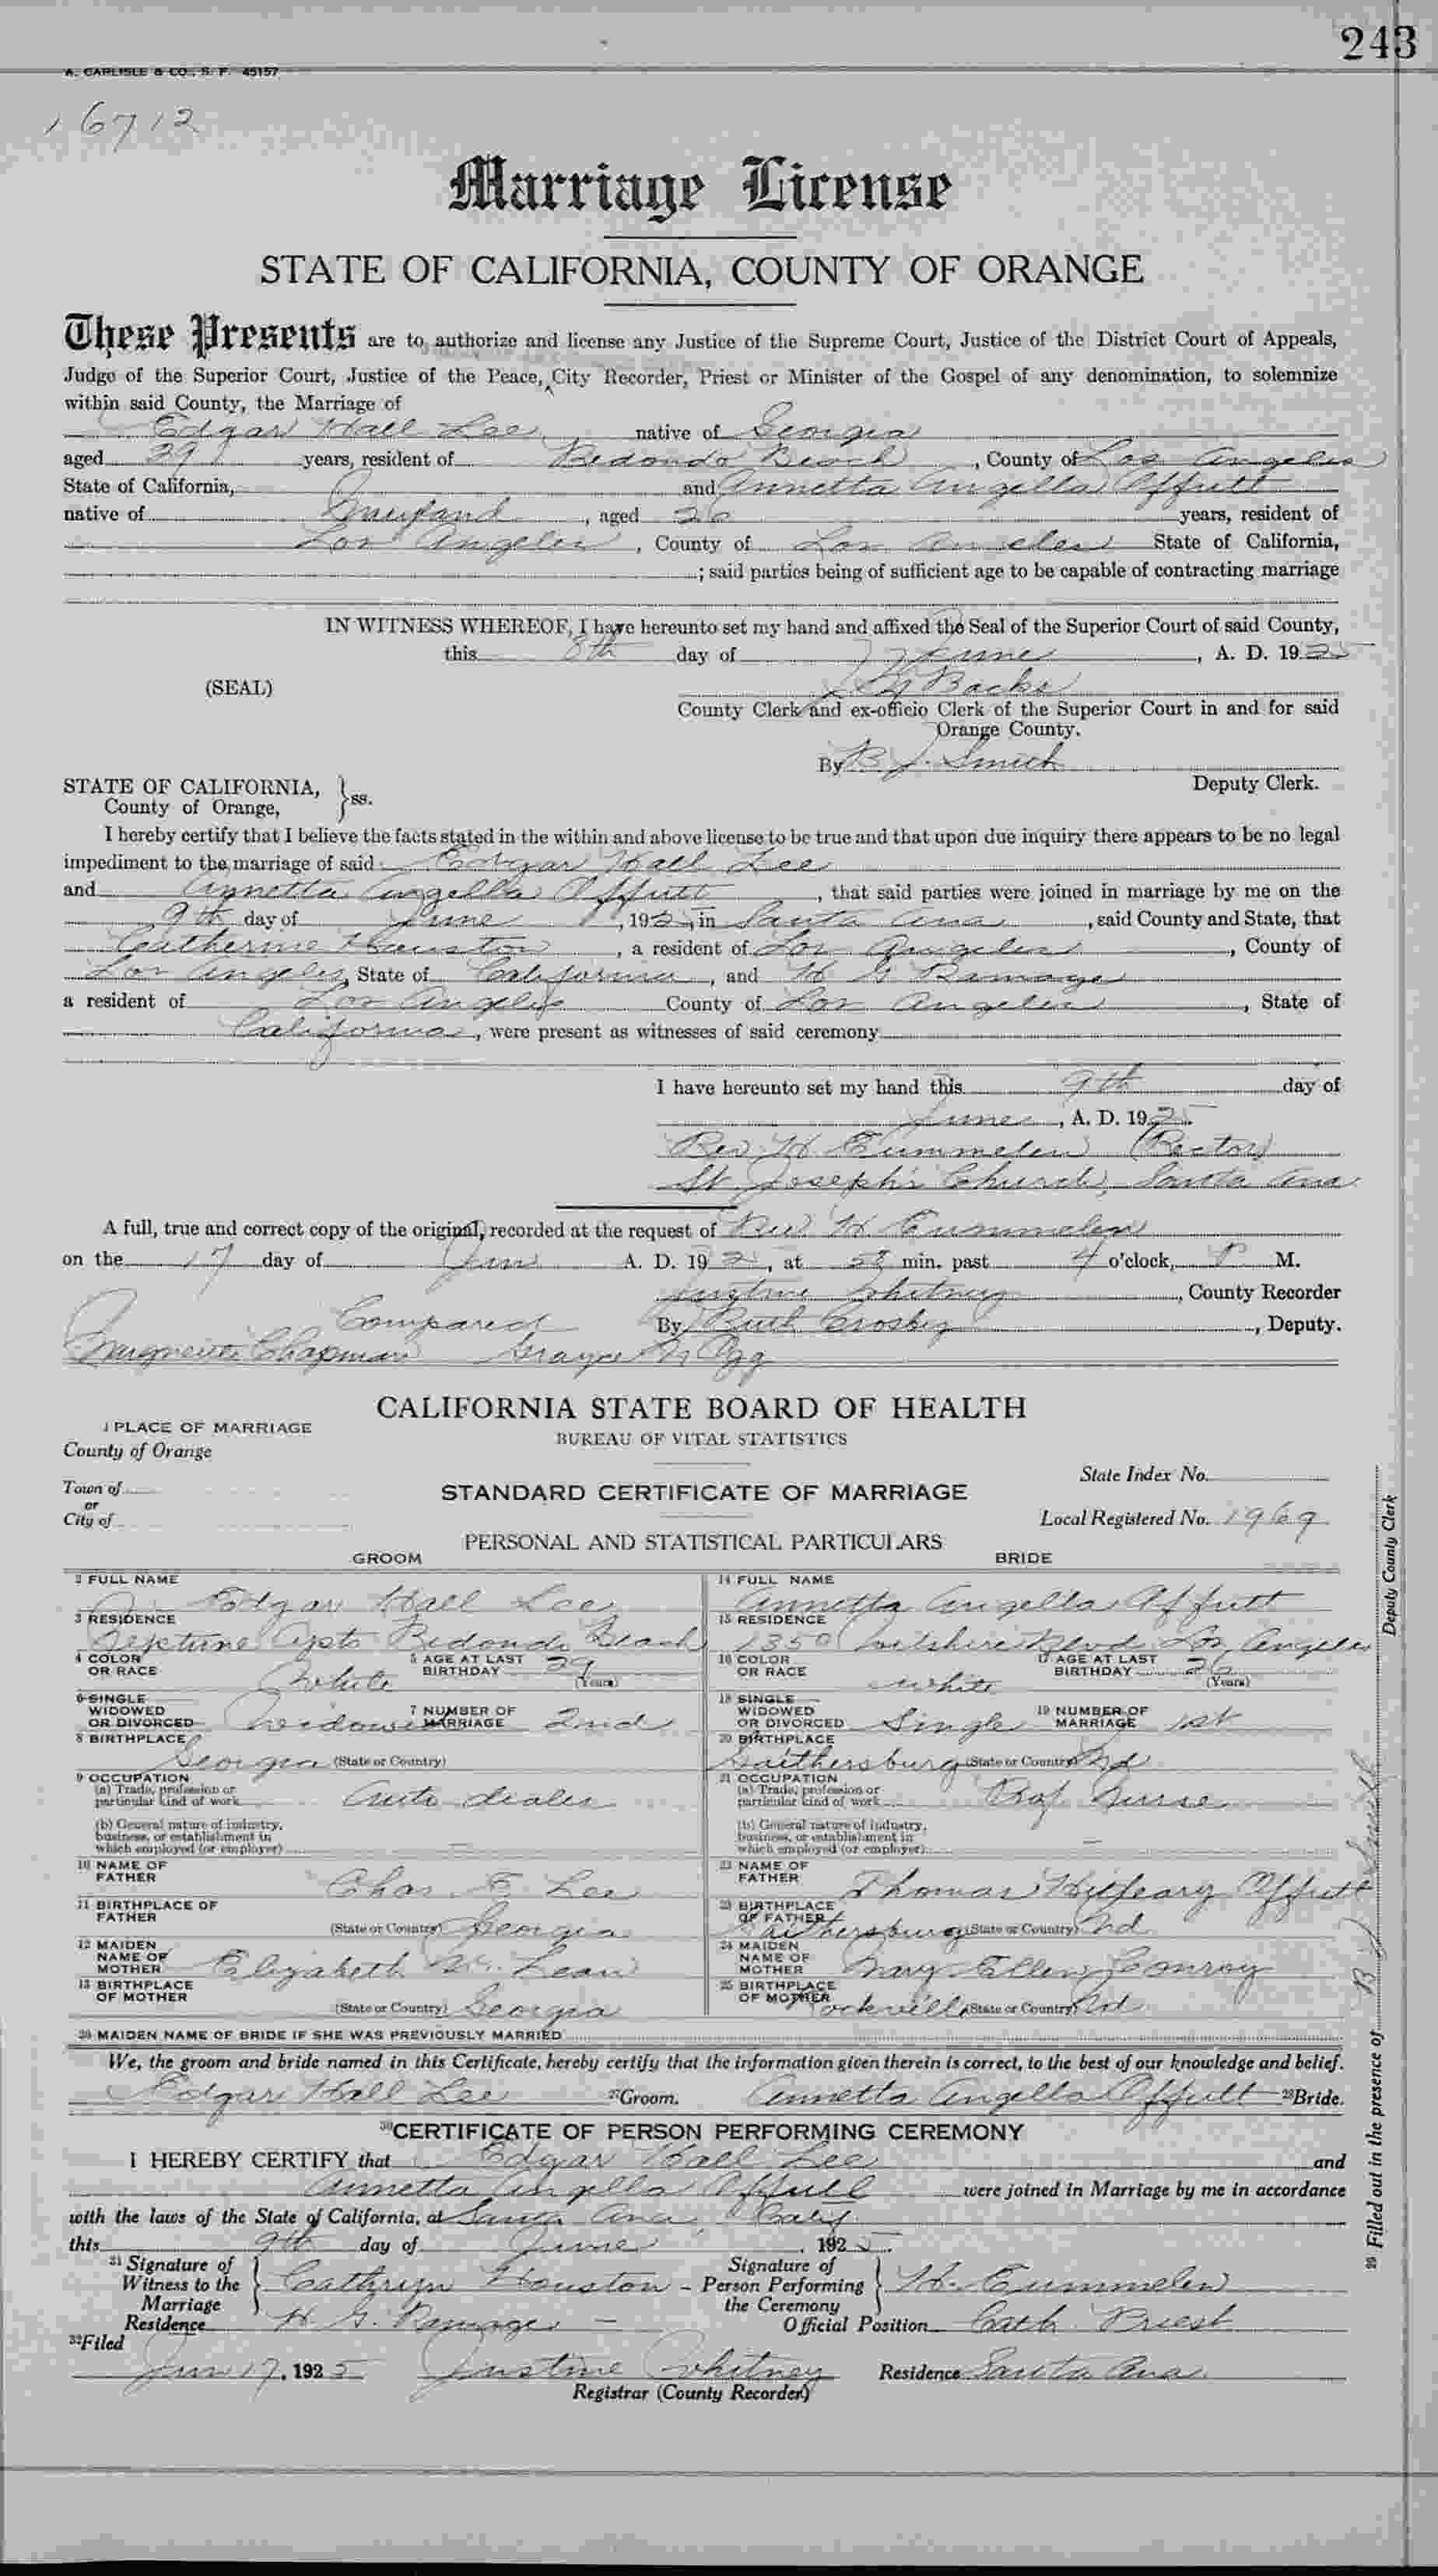 243
A. CARLISLE & CO., S. F. 45157
16712
Marriage License
STATE OF CALIFORNIA, COUNTY OF ORANGE
These Presents are to authorize and license any Justice of the Supreme Court, Justice of the District Court of Appeals,
Judge of the Superior Court, Justice of the Peace, City Recorder, Priest or Minister of the Gospel of any denomination, to solemnize
within said County, the Marriage of
Edgar Hall Lee native of Georgia
aged 29 years, resident of Redondo Beach, County of Los Angeles
State of California, and Annetta Angella Offutt
native of Maryland, aged 26 years, resident of
Los Angeles, County of Los Angeles State of California,
; said parties being of sufficient age to be capable of contracting marriage
IN WITNESS WHEREOF, I have hereunto set my hand and affixed the Seal of the Superior Court of said County,
this 8th day of June, A. D. 1925
(SEAL) Backs
County Clerk and ex-officio Clerk of the Superior Court in and for said
Orange County.
By B J. Smith
Deputy Clerk.
STATE OF CALIFORNIA,
County of Orange, } ss.
I hereby certify that I believe the facts stated in the within and above license to be true and that upon due inquiry there appears to be no legal
impediment to the marriage of said Edgar Hall Lee
and Annetta Angella Offutt, that said parties were joined in marriage by me on the
9th day of June, 1925, in Santa Ana, said County and State, that
Catherine Houston, a resident of Los Angeles, County of
Los Angeles, State of California, and H G Ramage
a resident of Los Angeles County of Los Angeles, State of
California, were present as witnesses of said ceremony
I have hereunto set my hand this 9th day of
June, A. D. 1925.
Rev H Eummelen (Rector)
St. Joseph's Church, Santa Ana
A full, true and correct copy of the original, recorded at the request of Rev H. Eummelen
on the 17 day of Jun A. D. 192, at 58 min. past 4 o'clock, P. M.
Justine Whitney, County Recorder
Compared By Ruth Crosby, Deputy.
Chapman Grayce
CALIFORNIA STATE BOARD OF HEALTH
1 PLACE OF MARRIAGE
BUREAU OF VITAL STATISTICS
County of Orange
State Index No.
Town of
or
City of
STANDARD CERTIFICATE OF MARRIAGE
Local Registered No. 1969
PERSONAL AND STATISTICAL PARTICULARS
GROOM BRIDE
2 FULL NAME Edgar Hall Lee
14 FULL NAME Annetta Angella Offutt
3 RESIDENCE Neptune Apts Redondo Beach
15 RESIDENCE 1350 Wilshire Blvd Los Angeles
4 COLOR OR RACE White 5 AGE AT LAST BIRTHDAY 29 (Years)
16 COLOR OR RACE White 17 AGE AT LAST BIRTHDAY 26 (Years)
6 SINGLE WIDOWED OR DIVORCED Widowed 7 NUMBER OF MARRIAGE 2nd
18 SINGLE WIDOWED OR DIVORCED Single 19 NUMBER OF MARRIAGE 1st
8 BIRTHPLACE Georgia (State or Country)
20 BIRTHPLACE Gaithersburg (State or Country) Md
9 OCCUPATION
(a) Trade, profession or particular kind of work Auto dealer
21 OCCUPATION
(a) Trade, profession or particular kind of work Prof Nurse
(b) General nature of industry, business, or establishment in which employed (or employer)
(b) General nature of industry, business, or establishment in which employed (or employer)
10 NAME OF FATHER Chas. E. Lee
22 NAME OF FATHER Thomas Hilleary Offutt
11 BIRTHPLACE OF FATHER (State or Country) Georgia
23 BIRTHPLACE OF FATHER Gaithersburg (State or Country) Md
12 MAIDEN NAME OF MOTHER Elizabeth Mc Lean
24 MAIDEN NAME OF MOTHER Mary Ellen Conroy
13 BIRTHPLACE OF MOTHER (State or Country) Georgia
25 BIRTHPLACE OF MOTHER Rockville (State or Country) Md
26 MAIDEN NAME OF BRIDE IF SHE WAS PREVIOUSLY MARRIED
We, the groom and bride named in this Certificate, hereby certify that the information given therein is correct, to the best of our knowledge and belief.
Edgar Hall Lee 27 Groom. Annetta Angella Offutt 28 Bride.
29 Filled out in the presence of B J Smith Deputy County Clerk
30 CERTIFICATE OF PERSON PERFORMING CEREMONY
I HEREBY CERTIFY that Edgar Hall Lee and
Annetta Angella Offutt were joined in Marriage by me in accordance
with the laws of the State of California, at Santa Ana, Calif
this 9th day of June, 1925.
31 Signature of Witness to the Marriage } Cathryn Houston
Signature of Person Performing the Ceremony } H. Eummelen
Residence H G. Ramage
Official Position Cath. Priest
32 Filed
Jun 17, 1925 Justine Whitney Residence Santa Ana.
Registrar (County Recorder)